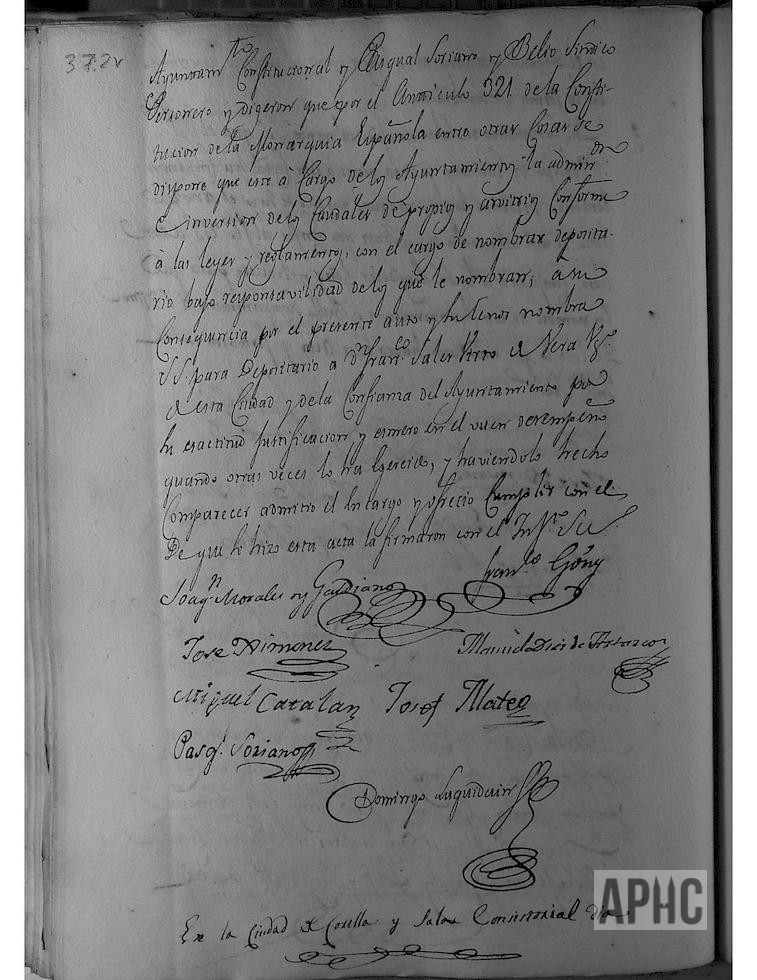 372v
Ayuntam.to Constitucional y Pasqual Soriano y Belio Sindico
Personero y digeron que por el Anticulo 321 de la Consti-
tucion de la Monarquia Española entre otras Cosas se
dispone que este á Cargo de los Ayuntamientos la admin.on
e inversion de los Caudales de propios y arvitrios Conforme
á las leyes y reglamentos, con el cargo de nombrar deposita-
rio bajo responsavilidad de los que le nombran; á su
Consequencia por el presente auto y su tenor nombra
SS. para Depositario a Dn Fran.co Sales de Vera Vz.o
de esta Ciudad y de la Confianza del Ayuntamiento por
su esactitud justificacion, y esmero en el vuen desempeño
quando otras veces lo ha Egercido, y haviendolo hecho
Comparecer admitio el Encargo y ofrecio Cumplir con el
De que se hizo esta acta la firmaron con el
Joaq.n Morales y Gaudiano Fran.co Goñy
Jose Ximenez Manuel Diez de
Miguel Catalan Josef Mateo
Pasq.l Soriano
Domingo Laquidain
En la Ciudad de Corella y Salas Consistorial dia
APHC